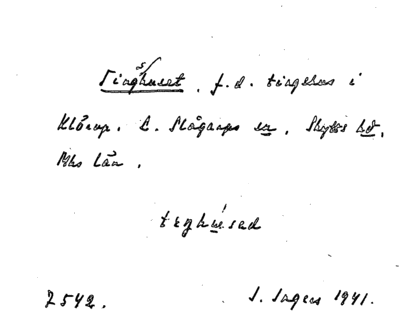 Tingshuset, f.d. tingshus i
Klörup. L. Slågarps sn, Skytts hd,
Mhs län.
teŋhúsəd
7542. S. Ingers 1941.